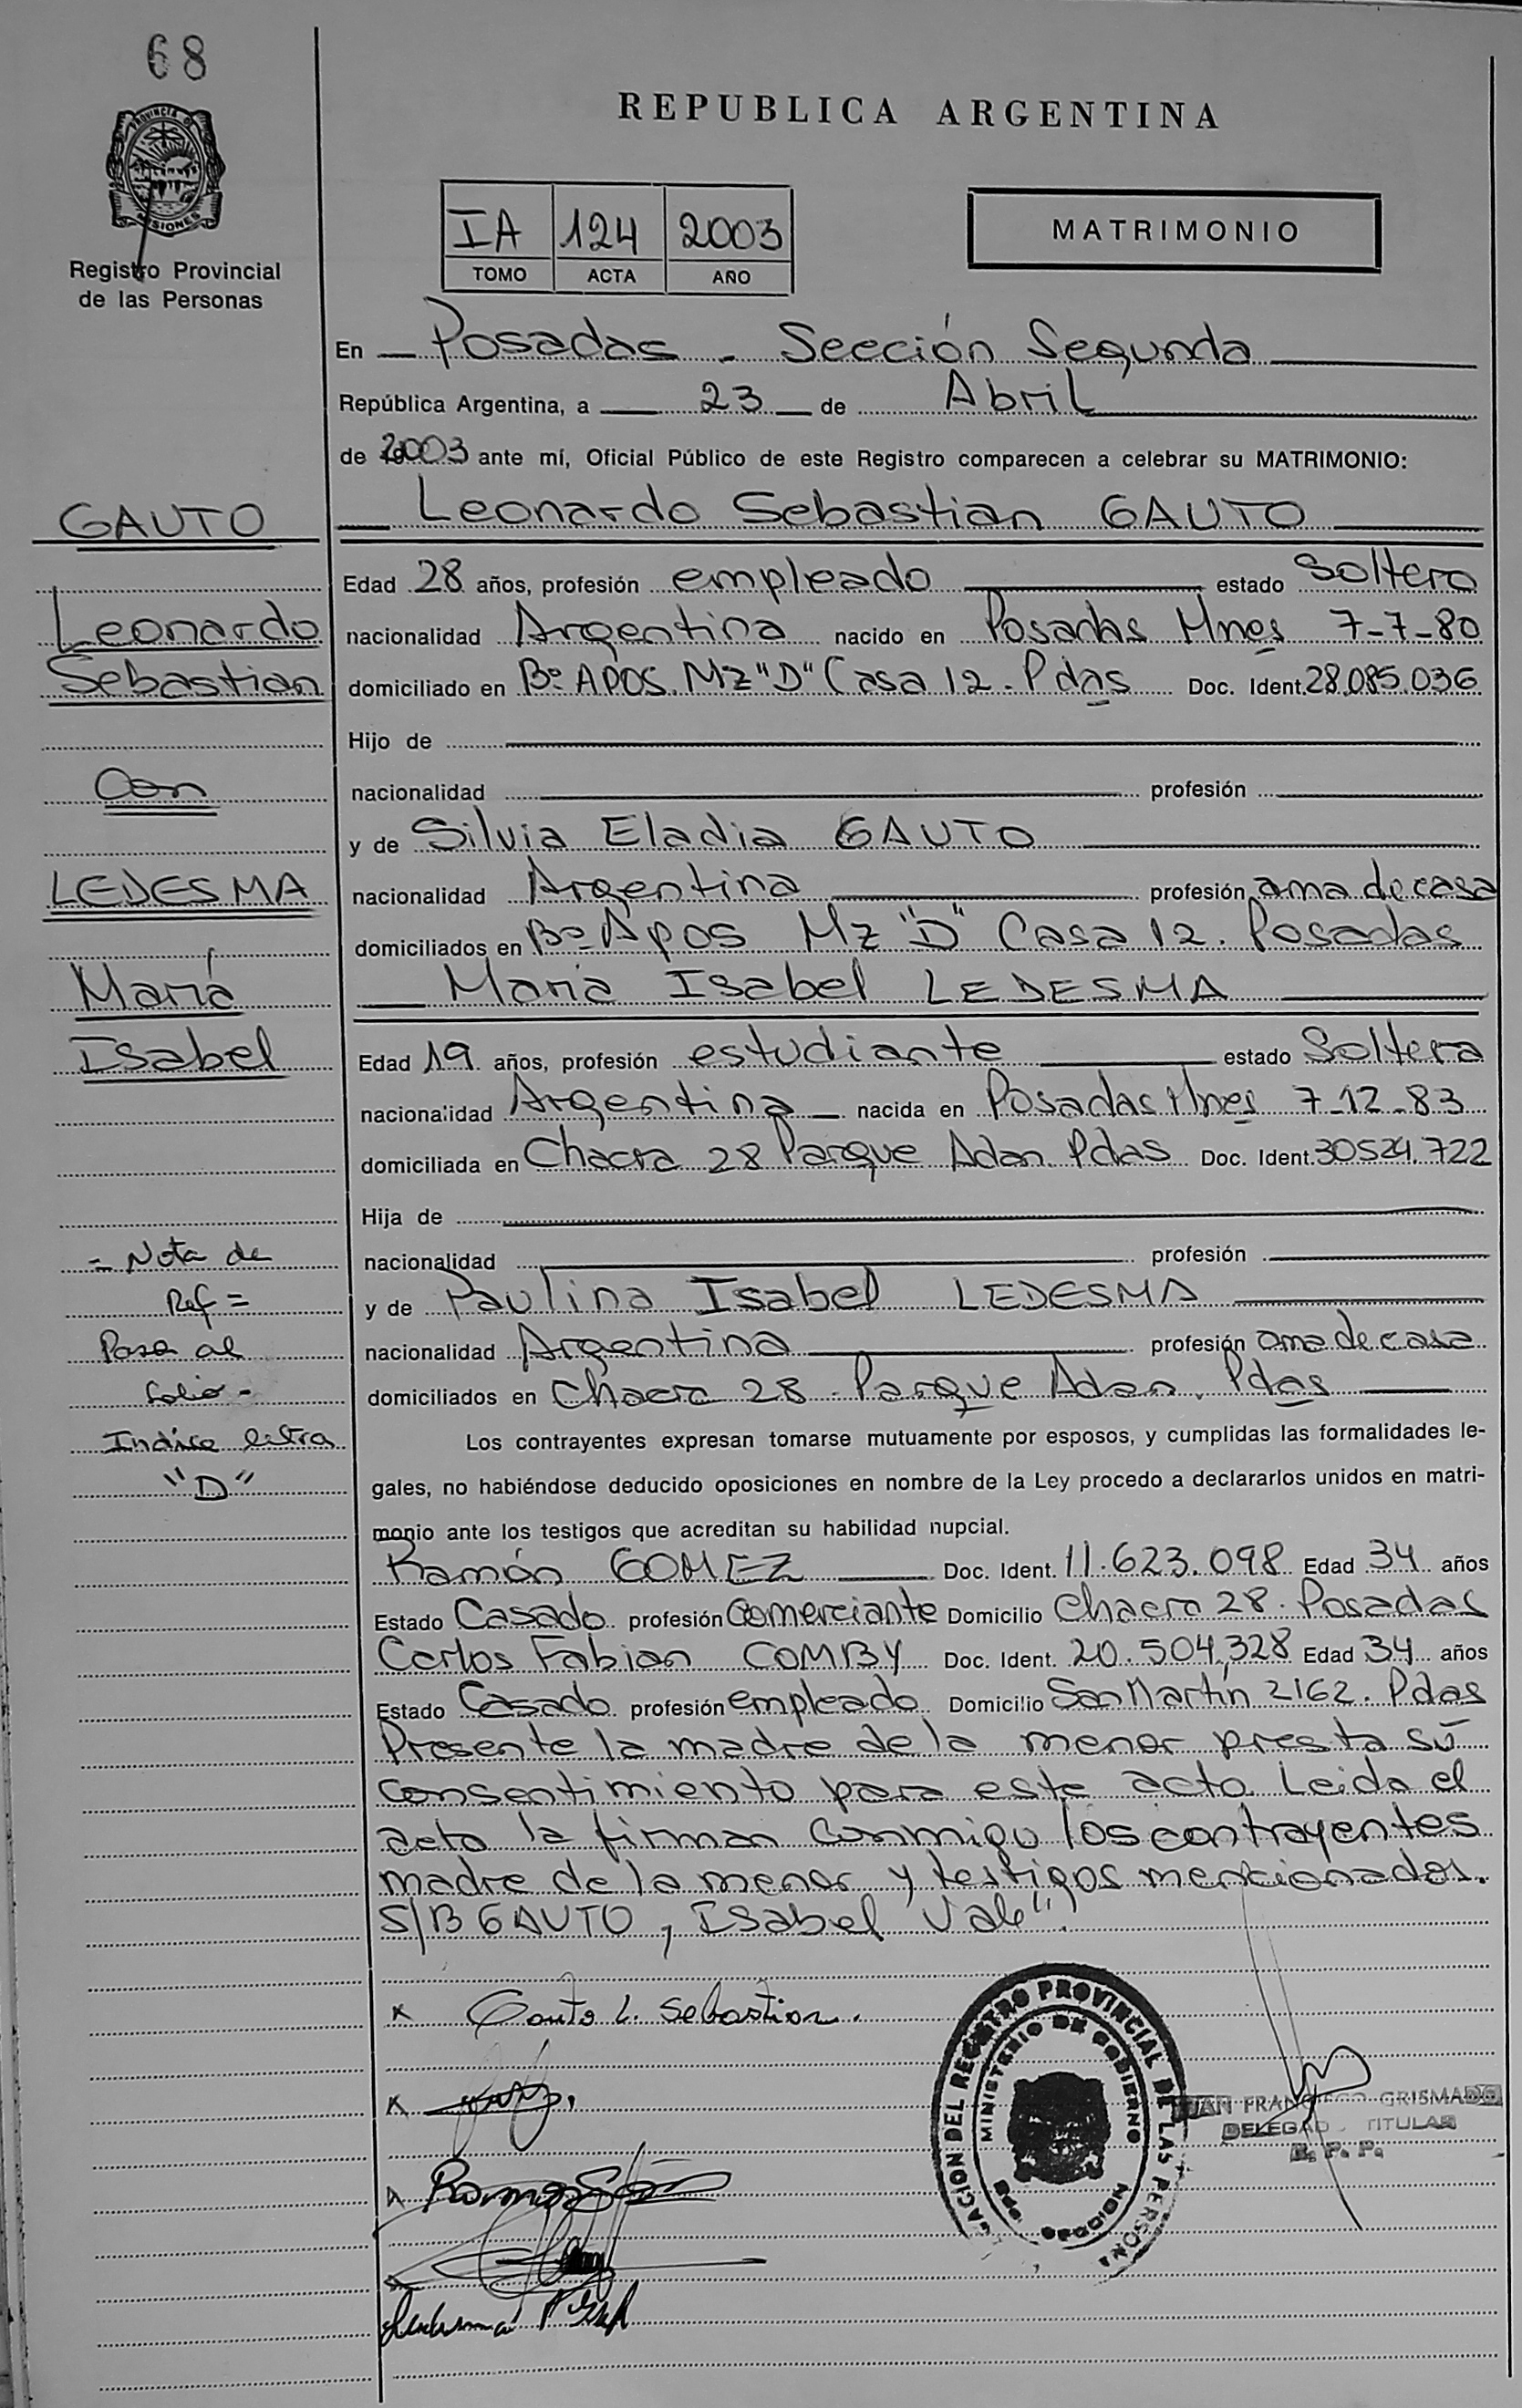 68
REPUBLICA ARGENTINA
PROVINCIA D
MISIONES
Registro Provincial
de las Personas
IA 124 2003
TOMO ACTA AÑO
MATRIMONIO
En Posadas - Sección Segunda
República Argentina, a 23 de Abril
de 2003 ante mí, Oficial Público de este Registro comparecen a celebrar su MATRIMONIO:
GAUTO
Leonardo
Sebastian
Con
LEDESMA
María
Isabel
= Nota de
Ref =
Pasa al
folio -
Indice letra
"D"
Leonardo Sebastian GAUTO
Edad 28 años, profesión empleado estado Soltero
nacionalidad Argentina nacido en Posadas Mnes 7-7-80
domiciliado en Bº APOS. Mz "D" Casa 12. Pdas Doc. Ident. 28.085.036
Hijo de
nacionalidad profesión
y de Silvia Eladia GAUTO
nacionalidad Argentina profesión ama de casa
domiciliados en Bº Apos Mz "D" Casa 12. Posadas
María Isabel LEDESMA
Edad 19 años, profesión estudiante estado Soltera
nacionalidad Argentina nacida en Posadas Mnes 7-12-83
domiciliada en Chacra 28 Parque Adan Pdas Doc. Ident. 30524.722
Hija de
nacionalidad profesión
y de Paulina Isabel LEDESMA
nacionalidad Argentina profesión ama de casa
domiciliados en Chacra 28. Parque Adan. Pdas
Los contrayentes expresan tomarse mutuamente por esposos, y cumplidas las formalidades le-
gales, no habiéndose deducido oposiciones en nombre de la Ley procedo a declararlos unidos en matri-
monio ante los testigos que acreditan su habilidad nupcial.
Ramón GOMEZ Doc. Ident. 11.623.098 Edad 34 años
Estado Casado profesión Comerciante Domicilio Chacra 28. Posadas
Carlos Fabian COMBY Doc. Ident. 20.504,328 Edad 34 años
Estado Casado profesión empleado Domicilio San Martín 2162. Pdas
Presente la madre de la menor presta su
consentimiento para este acto. Leida el
acta la firman conmigo los contrayentes
madre de la menor y testigos mencionados.
S/B GAUTO, Isabel Vale".
x Gauto L. Sebastian.
x
x
Ledesma
CACION DEL REGISTRO PROVINCIAL DE LAS PERSONA
MINISTERIO DE GOBIERNO
JUAN FRANCISCO GRISMADO
DELEGADO TITULAR
R. P. P.